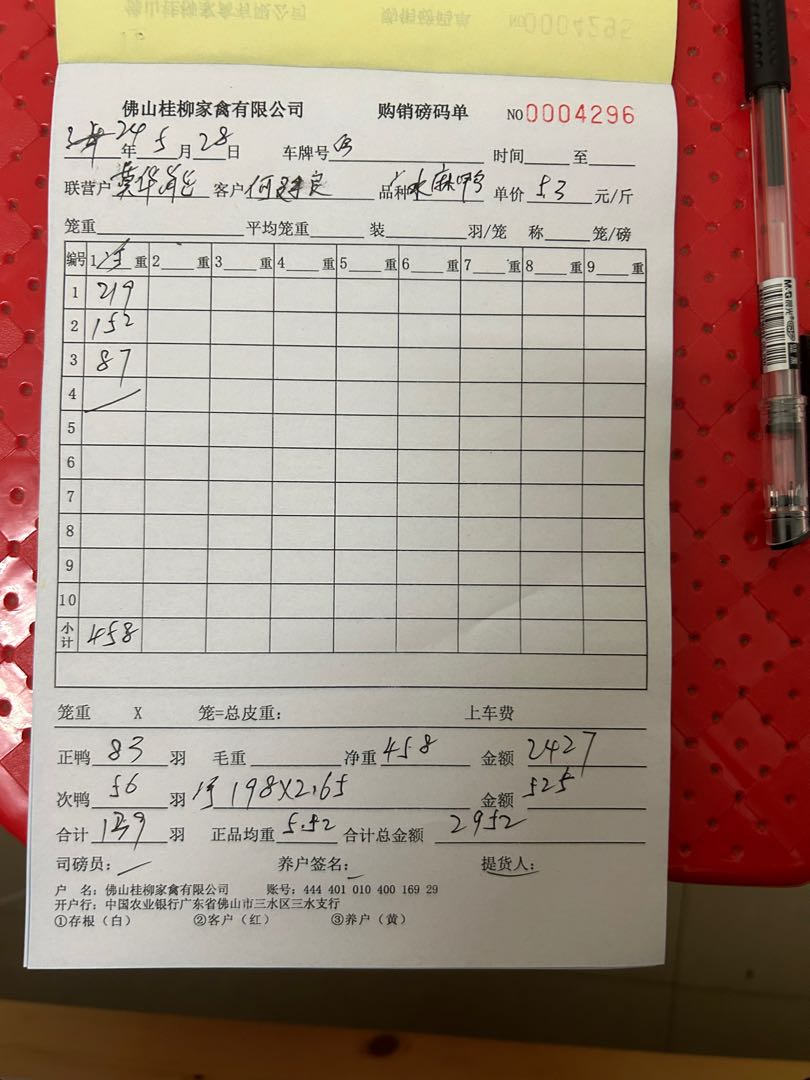 佛山桂柳家禽有限公司 购销磅码单 NO0004295
佛山桂柳家禽有限公司 购销磅码单 NO0004296
24年5月28日 车牌号 时间 至
联营户 莫华 客户 何 良 品种 水麻鸭 单价 5.3 元/斤
笼重 平均笼重 装 羽/笼 称 笼/磅
编号 1 净 重 2 重 3 重 4 重 5 重 6 重 7 重 8 重 9 重
1 219
2 152
3 87
4
5
6
7
8
9
10
小计 458
笼重 X 笼=总皮重: 上车费
正鸭 83 羽 毛重 净重 458 金额 2427
次鸭 56 羽 净 198X2.65 金额 525
合计 139 羽 正品均重 5.52 合计总金额 2952
司磅员: 养户签名: 提货人:
户 名: 佛山桂柳家禽有限公司 账号: 444 401 010 400 169 29
开户行: 中国农业银行广东省佛山市三水区三水支行
①存根（白） ②客户（红） ③养户（黄）
M&G 晨光